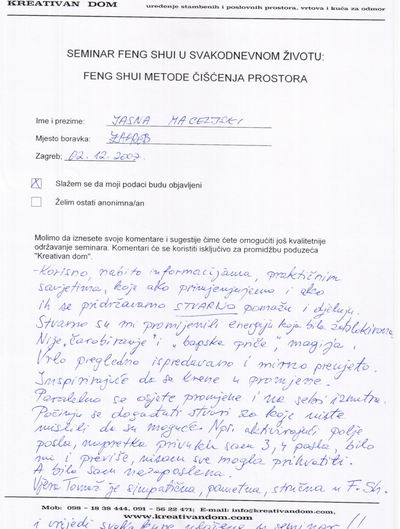 KREATIVAN DOM
uređenje stambenih i poslovnih prostora, vrtova i kuća za odmor
SEMINAR FENG SHUI U SVAKODNEVNOM ŽIVOTU:
FENG SHUI METODE ČIŠĆENJA PROSTORA
Ime i prezime: JASNA MACELJSKI
Mjesto boravka: ZAGREB
Zagreb, 02.12.2007.
X Slažem se da moji podaci budu objavljeni
Želim ostati anonimna/an
Molimo da iznesete svoje komentare i sugestije čime ćete omogućiti još kvalitetnije
održavanje seminara. Komentari će se koristiti isključivo za promidžbu poduzeća
"Kreativan dom".
- Korisno, nabito informacijama, praktičnim
savjetima, koje ako primjenjujemo i ako
ih se pridržavamo STVARNO pomažu i djeluju.
Stvarno su mi promijenili energiju koja bila zablokirana
Nije "čarobiranje" i "bapske priče", magija.
Vrlo pregledno ispredavano i mirno preneto.
Inspirirajuće da se krene u promjene.
Paralelno se osjete promjene i na sebi iznutra.
Počinju se događati stvari za koje niste
mislili da su moguće. Npr. aktivirajući polje
posla, napretka privukla sam 3, 4 posla, bilo
mi i previše, nisam sve mogla prihvatiti.
A bila sam nezaposlena.
Vjera Tomuš je simpatična, pametna, stručna u F. Sh.
Mob: 098 - 18 38 444, 091 - 56 22 471; E-mail: info@kreativandom.com
www.kreativandom.com
i vrijedi svake kune uložene u seminar !!